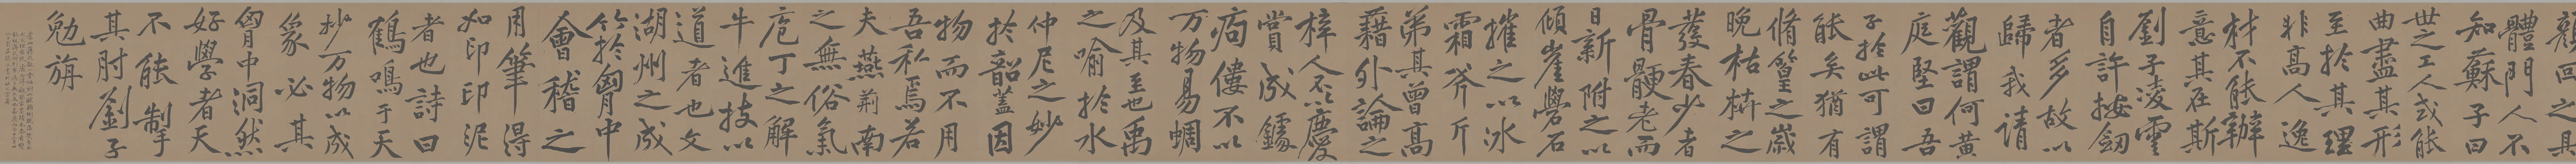 顏回之具
體門人不
知蘇子曰
世之工人或能
曲盡其形
至於其理
非高人逸
材不能辦
意其在斯
劉子淩雲
自許按劒
者多故以
歸我請
觀謂何黃
庭堅曰吾
子於此可謂
能矣猶有
脩篁之歲
晚枯枿之
發春少者
骨骾老而
日新附之以
傾崖礐石
摧之以冰
霜斧斤
第其曾高
藉外論之
梓人不慶
賞成鐻
痀僂不以
万物易蜩
及其至也禹
之喻於水
仲尼之妙
於韶蓋因
物而不用
吾私焉若
夫燕荊南
之無俗氣
庖丁之解
牛進技以
道者也文
湖州之成
竹於胷中
會稽之
用筆得
如印印泥
者也詩曰
鶴鳴于天
妙万物以成
象必其
胷中洞然
好學者天
不能掣
其肘劉子
勉旃